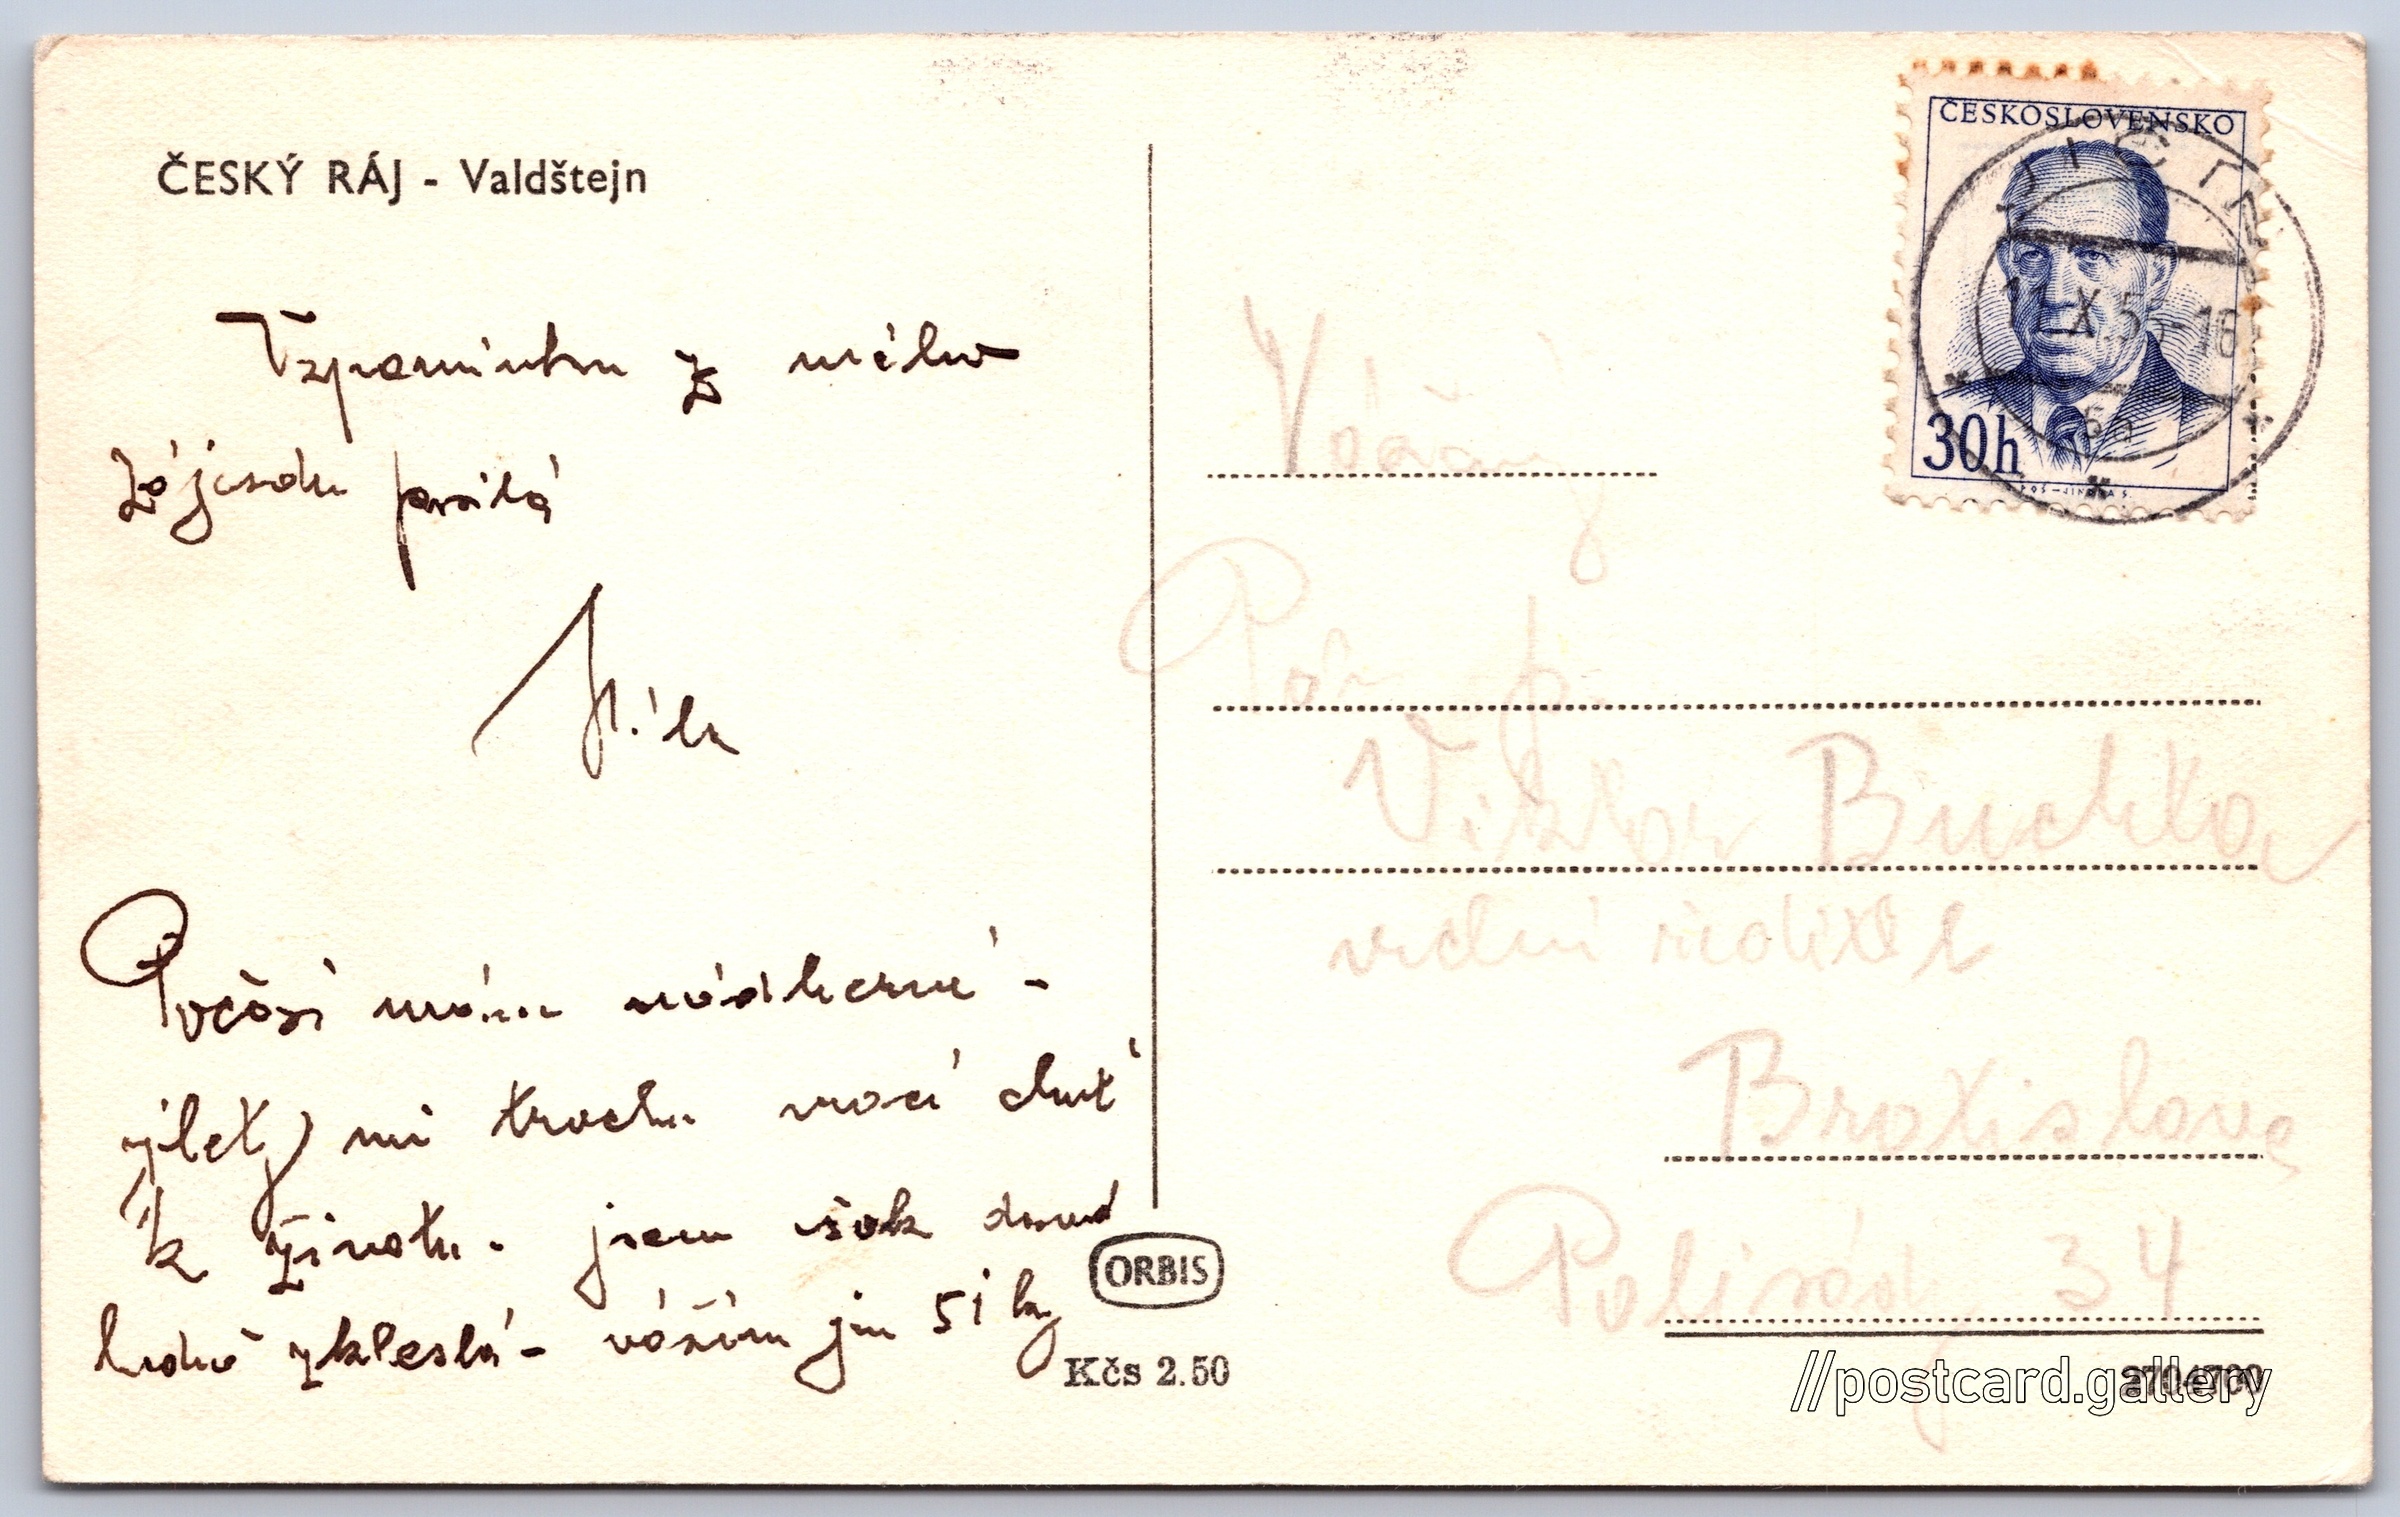 ČESKÝ RÁJ - Valdštejn
Vzpomínku z milého
zájezdu posílá
Míla
Počasí máme nádherné -
výlety mi trochu vrací chuť
k životu. jsem však dosud
hodně zkleslá - vážím jen 51 kg
ORBIS
Kčs 2.50
ČESKOSLOVENSKO
30h
JIČÍN
11.X.5 -16
6h
Vážený
Pán p.
Viktor Buchta
vrchní ředitel
Bratislava
Palisády 34
//postcard.gallery